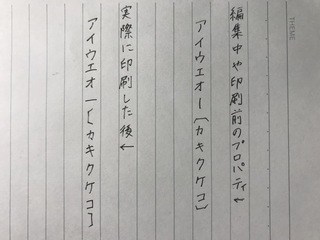 THEME
編集中や印刷前のプロパティ←
アイウエオー〔カキクケコ〕
実際に印刷した後←
アイウエオー〔カキクケコ〕